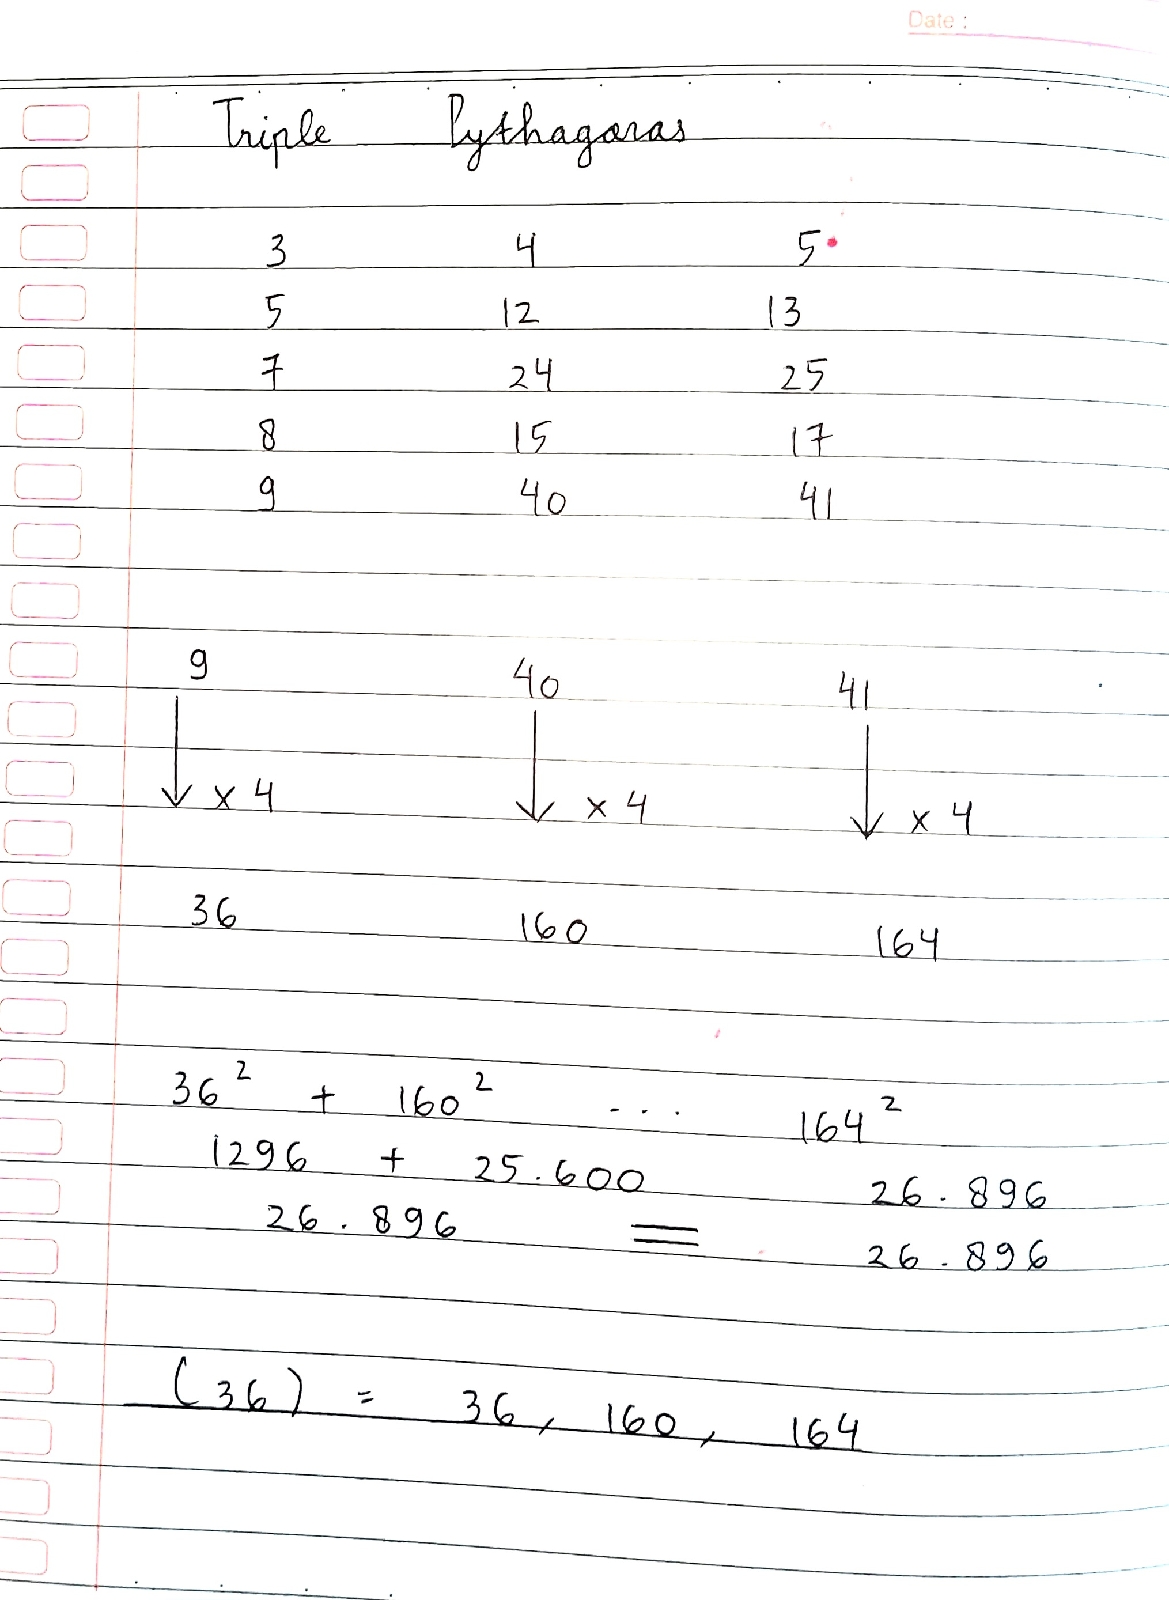 Date :
Triple Pythagoras
3 4 5
5 12 13
7 24 25
8 15 17
9 40 41
9 40 41
x 4 x 4 x 4
36 160 164
36² + 160² ... 164²
1296 + 25.600 26.896
26.896 = 26.896
(36) = 36, 160, 164